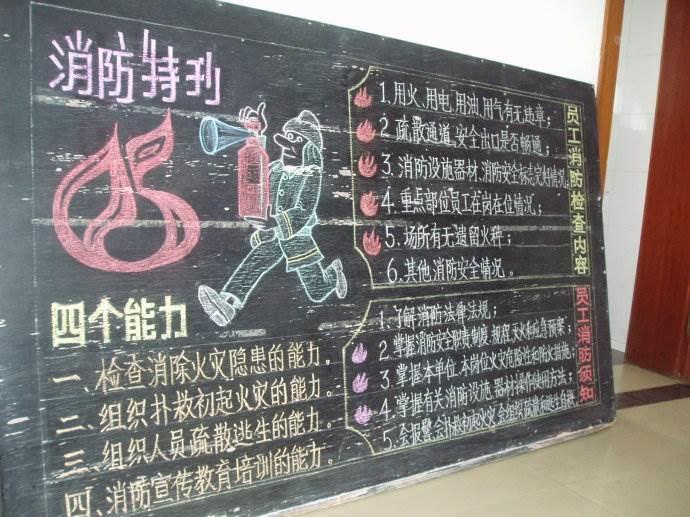 消防特刊
四个能力
一、检查消除火灾隐患的能力。
二、组织扑救初起火灾的能力。
三、组织人员疏散逃生的能力。
四、消防宣传教育培训的能力。
员工消防检查内容
1.用火、用电、用油、用气有无违章；
2.疏散通道、安全出口是否畅通；
3.消防设施器材、消防安全标志完好情况；
4.重点部位员工在岗在位情况；
5.场所有无遗留火种；
6.其他消防安全情况。
员工消防须知
1.了解消防法律法规；
2.掌握消防安全职责、制度、规程、灭火和应急预案；
3.掌握本单位、本岗位火灾危险性和防火措施；
4.掌握有关消防设施、器材操作使用方法；
5.会报警、会扑救初起火灾、会组织疏散逃生自救。